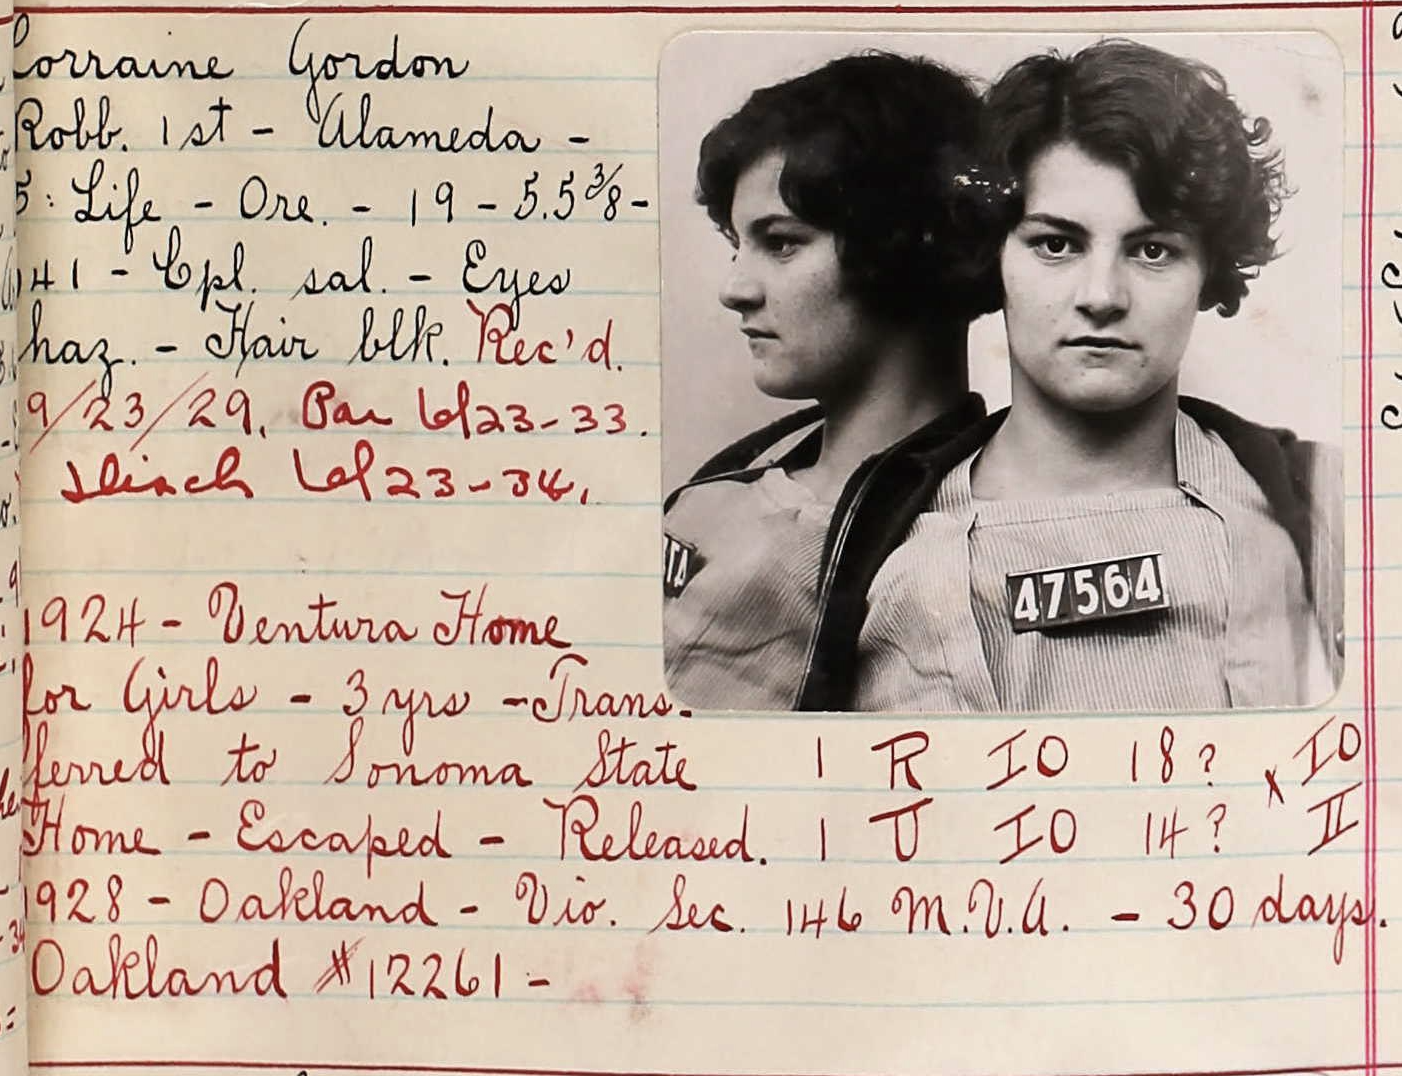 Lorraine Gordon
Robb. 1st - Alameda -
5: Life - Ore. - 19 - 5.5 3/8 -
141 - Cpl. sal. - Eyes
haz. - Hair blk. Rec'd.
9/23/29. Par 6/23-33.
Disch 6/23-34.
47564
1924 - Ventura Home
for Girls - 3 yrs - Trans-
ferred to Sonoma State
Home - Escaped - Released.
1 R IO 18? x IO
1 U IO 14? II
1928 - Oakland - Vio. Sec. 146 M.V.A. - 30 days.
Oakland #12261 -